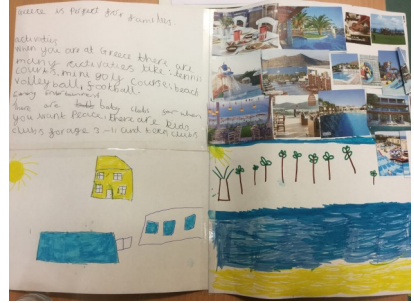 is perfect for families.
activities
when you are at there are
many activities like tennis
courts, mini golf courses, beach
volleyball, football
there are baby clubs for when
you want peace, there are kids
clubs for age 3-11 and teens clubs